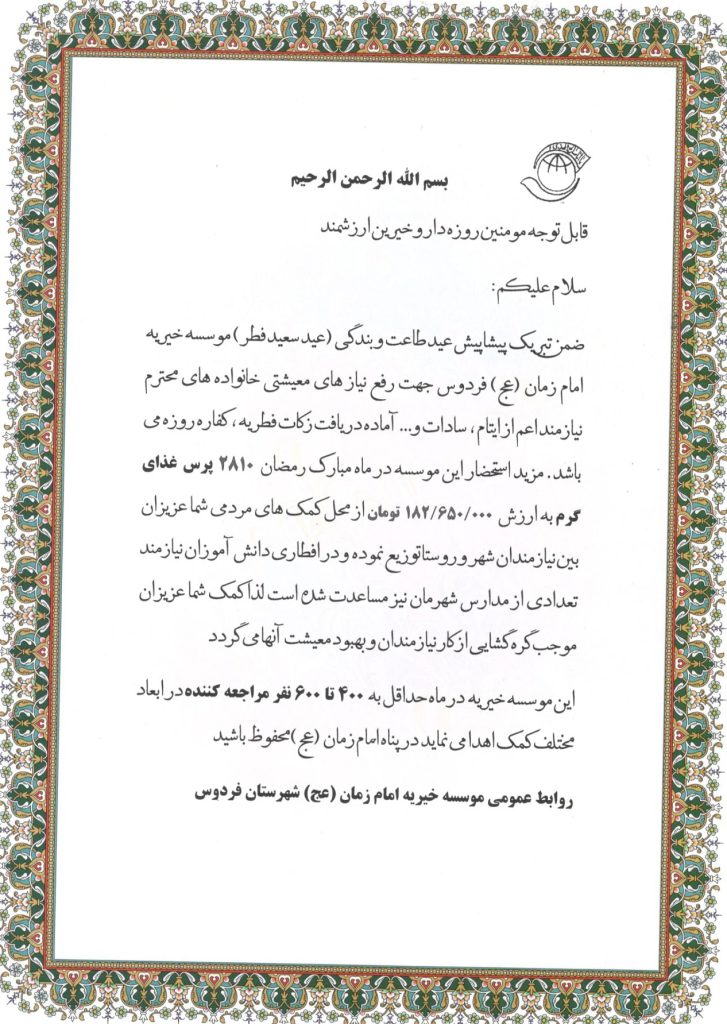 بسم الله الرحمن الرحیم
قابل توجه مومنین روزه دار و خیرین ارزشمند
سلام علیکم:
ضمن تبریک پیشاپیش عید طاعت و بندگی (عید سعید فطر) موسسه خیریه
امام زمان (عج) فردوس جهت رفع نیاز های معیشتی خانواده های محترم
نیازمند اعم از ایتام، سادات و... آماده دریافت زکات فطریه، کفاره روزه می
باشد. مزید استحضار این موسسه در ماه مبارک رمضان ۲۸۱۰ پرس غذای
گرم به ارزش ۱۸۲/۶۵۰/۰۰۰ تومان از محل کمک های مردمی شما عزیزان
بین نیازمندان شهر و روستا توزیع نموده و در افطاری دانش آموزان نیازمند
تعدادی از مدارس شهرمان نیز مساعدت شده است لذا کمک شما عزیزان
موجب گره گشایی از کار نیازمندان و بهبود معیشت آنها می گردد
این موسسه خیریه در ماه حداقل به ۴۰۰ تا ۶۰۰ نفر مراجعه کننده در ابعاد
مختلف کمک اهدا می نماید در پناه امام زمان (عج) محفوظ باشید
روابط عمومی موسسه خیریه امام زمان (عج) شهرستان فردوس